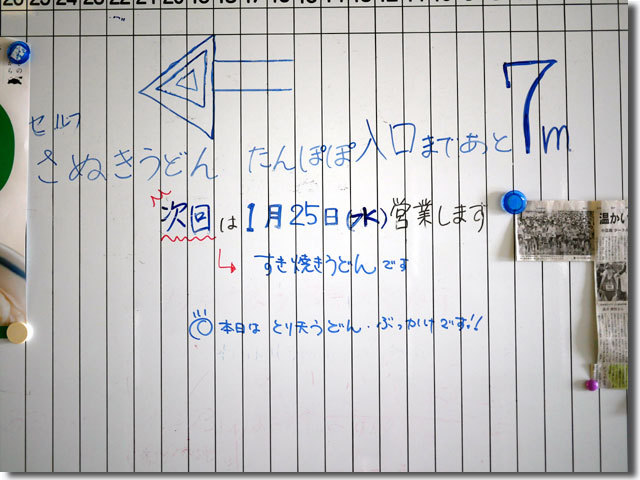 セルフ
さぬきうどん たんぽぽ入口まであと7m
次回は1月25日(水)営業します
すき焼きうどんです
本日はとり天うどん・ぶっかけです!!
温かい